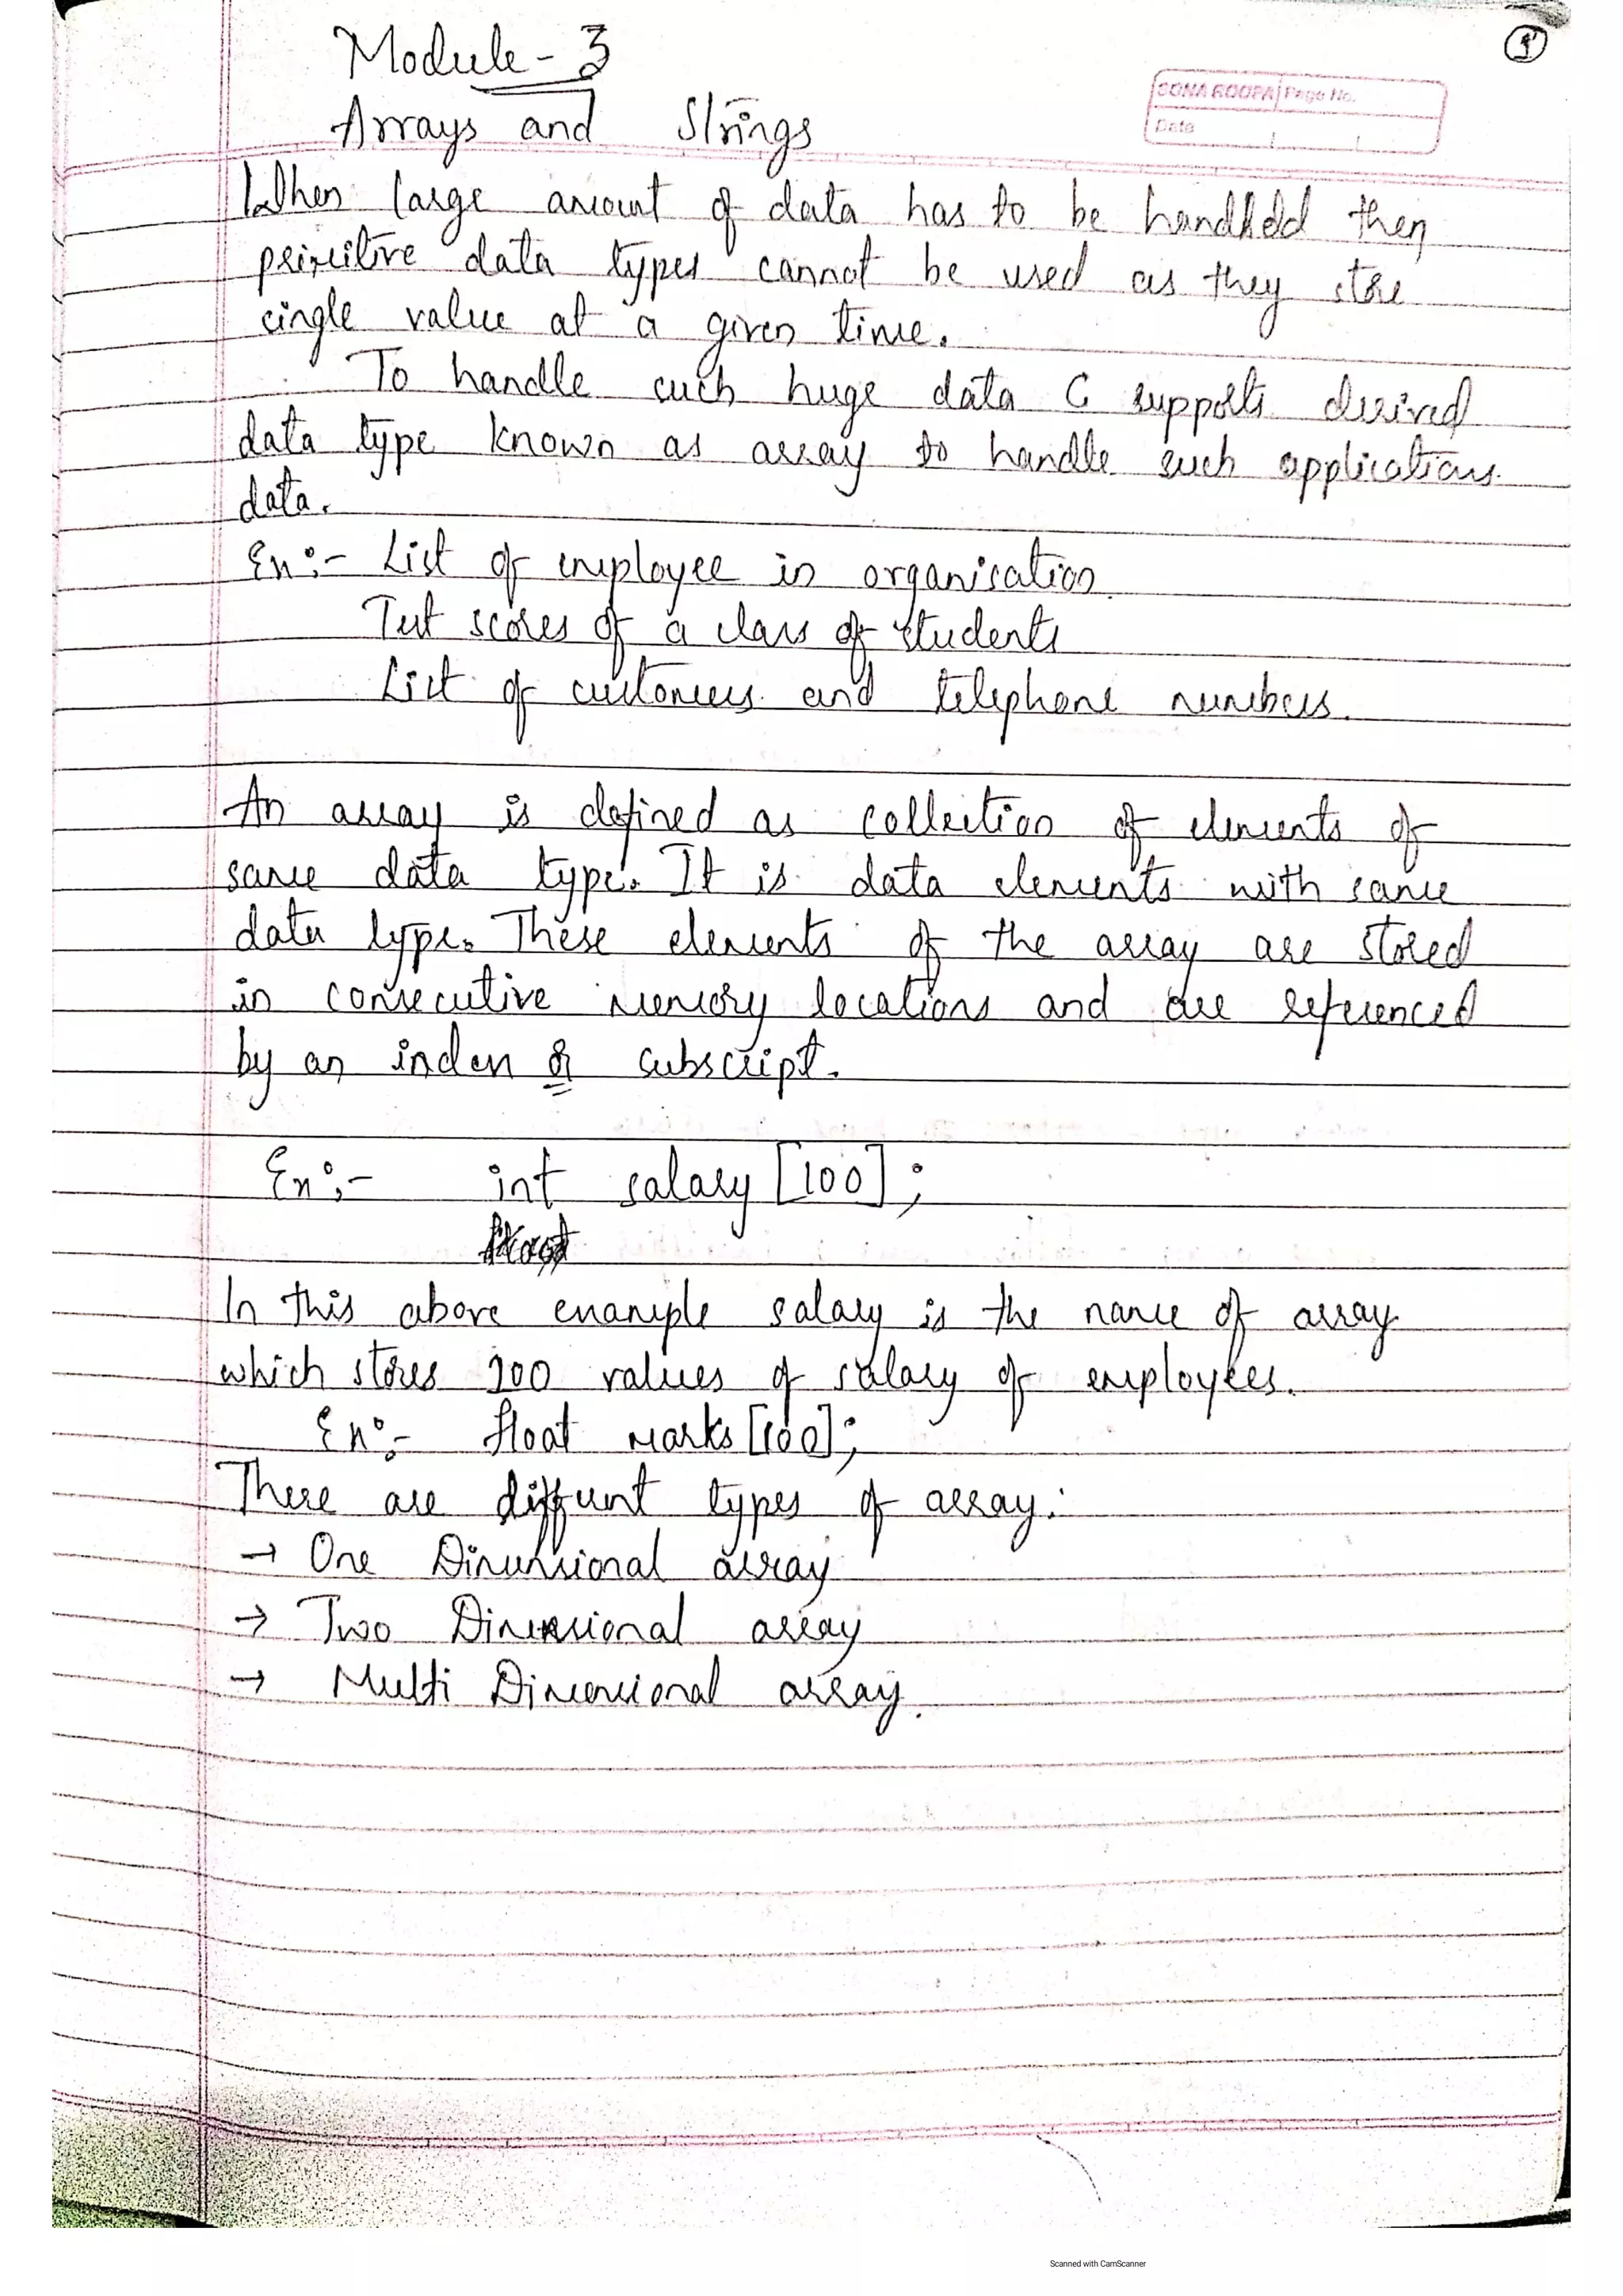 1
Module - 3
SONA ROOPA Page No.
Date
Arrays and Strings
When large amount of data has to be handled then
primitive data types cannot be used as they store
single value at a given time.
To handle such huge data C supports derived
data type known as array to handle such applications
data.
Ex:- List of employee in organisation
Test scores of a class of students
List of customers and telephone numbers.
An array is defined as collection of elements of
same data type. It is data elements with same
data type. These elements of the array are stored
in consecutive memory locations and are referenced
by an index or subscript.
Ex:- int salary [100];
In this above example salary is the name of array
which stores 100 values of salary of employees.
Ex:- float marks [100];
There are different types of array:
→ One Dimensional array
→ Two Dimensional array
→ Multi Dimensional array.
Scanned with CamScanner